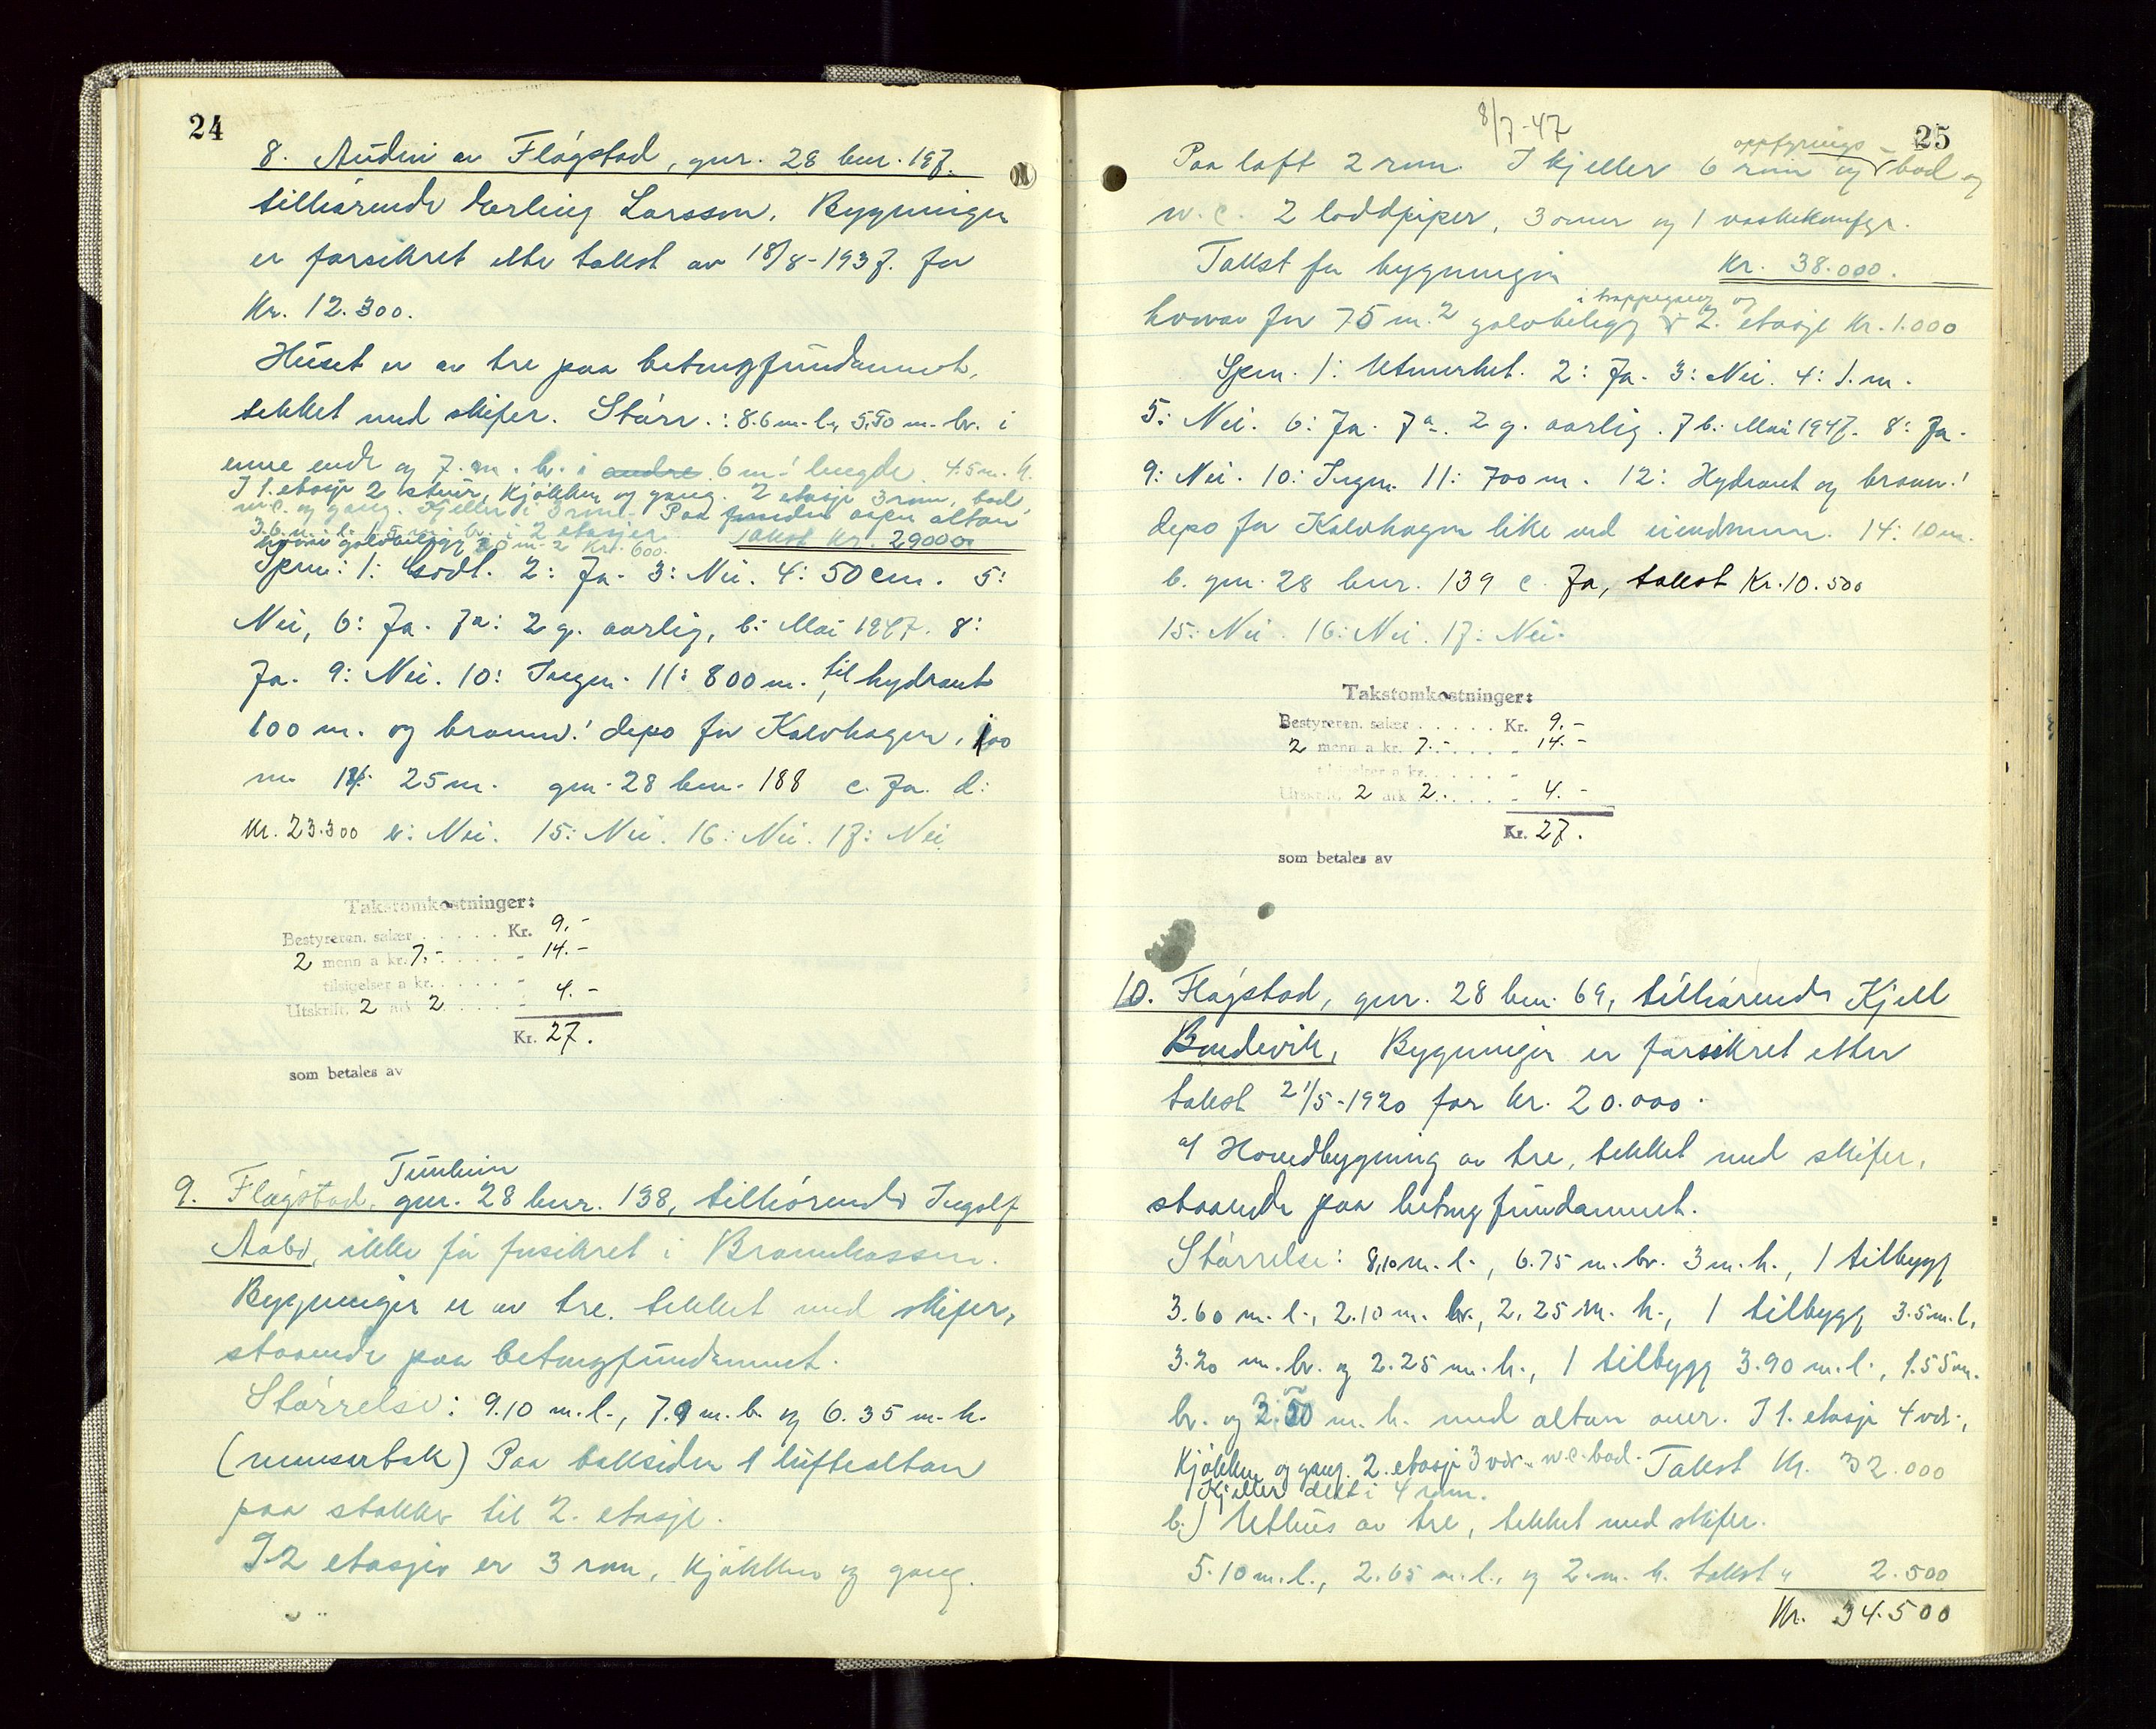 24
8. Audni av Flågstad, gnr. 28 bnr. 197.
tilhørende Erling Larsson. Bygningen
er forsikret etter takst av 18/8-1937. for
Kr. 12.300.
Huset er av tre paa betongfundament,
tekket med skifer. Størr.: 8.6 m. l., 5.50 m. br. i
enne ende og 7. m. br. i andre 6 m.' lengde. 4.5 m. h.
I 1. etasje 2 stuer, kjøkken og gang. 2 etasje 3 rom, bad,
w.c. og gang. Kjeller i 3 rom. Paa åpen altan
3.6 m. l. br. i 2 etasjer.
golvbelegg m. 2 Kr. 600. Takst Kr. 29000
Spm: 1: Godt. 2: Ja. 3: Nei. 4: 50 cm. 5:
Nei, 6: Ja. 7a: 2 g. aarlig, b: Mai 1947. 8:
Ja. 9: Nei. 10: Ingen. 11: 800 m. til hydrant
100 m. og brannv.' depo for Kalvhagen, 100
m. 14: 25 m. gnr. 28 bnr. 188 c. Ja. d:
Kr. 23.300 e: Nei. 15: Nei. 16: Nei. 17: Nei
Takstomkostninger:
Bestyreren. salær . . . . . Kr. 9.-
2 menn a kr. 7.- . . . . - 14.-
tilsigelser a kr. . . . . . -
Utskrift. 2 ark 2 . . . . - 4.-
Kr. 27.
som betales av
Tunheim
9. Flågstad, gnr. 28 bnr. 138, tilhørende Ingolf
Aabø, ikke før forsikret i Brannkassen.
Bygningen er av tre. tekket med skifer,
staaende paa betongfundament.
Størrelse: 9.10 m. l., 7.9 m. b. og 6.35 m. h.
(mansartak) Paa baksiden 1 luftealtan
paa stokker til 2. etasje.
I 2 etasjer er 3 rom, kjøkken og gang.
8/7-47
25
oppfyrings-
Paa loft 2 rom. I kjeller 6 rom og bod og
w.c. 2 loddpiper, 3 omner og 1 vaskekomfyr.
Takst for bygningen Kr. 38.000.
i trappegang og
hvorav for 75 m.2 golvbelegg 2. etasje Kr. 1.000
Spm. 1: Utmerket. 2: Ja. 3: Nei. 4: 1. m.
5: Nei. 6: Ja. 7a. 2 g. aarlig. 7b: Mai 1947. 8: Ja.
9: Nei. 10: Ingen. 11: 700 m. 12: Hydrant og brannv.'
depo for Kalvhagen like ved eiendommen. 14: 10 m.
b. gnr. 28 bnr. 139 c. Ja, takst Kr. 10.500
15: Nei. 16: Nei. 17: Nei.
Takstomkostninger:
Bestyreren. salær . . . . . Kr. 9.-
2 menn a kr. 7.- . . . . - 14.-
tilsigelser a kr. . . . . . -
Utskrift. 2 ark 2. . . . . - 4.-
Kr. 27.
som betales av
10. Flågstad, gnr. 28 bnr. 69, tilhørende Kjell
Bondevik, Bygningen er forsikret etter
takst 21/5-1920 for Kr. 20.000.
a/ Hovedbygning av tre, tekket med skifer,
staaende paa betongfundament.
Størrelse: 8,10 m. l., 6.75 m. br. 3 m. h., 1 tilbygg
3.60 m. l., 2.10 m. br., 2.25 m. h., 1 tilbygg 3.5 m. l.,
3.20 m. br. og 2.25 m. h., 1 tilbygg 3.90 m. l., 1.55 m.
br. og 2.50 m. h. med altan over. I 1. etasje 4 vær.,
kjøkken og gang. 2. etasje 3 vær. w.c. bad. Takst Kr. 32.000
Kjeller delt i 4 rom.
b.) Uthus av tre, tekket med skifer.
5.10 m. l., 2.65 m. l., og 2. m. h. takst " 2.500
Kr. 34.500